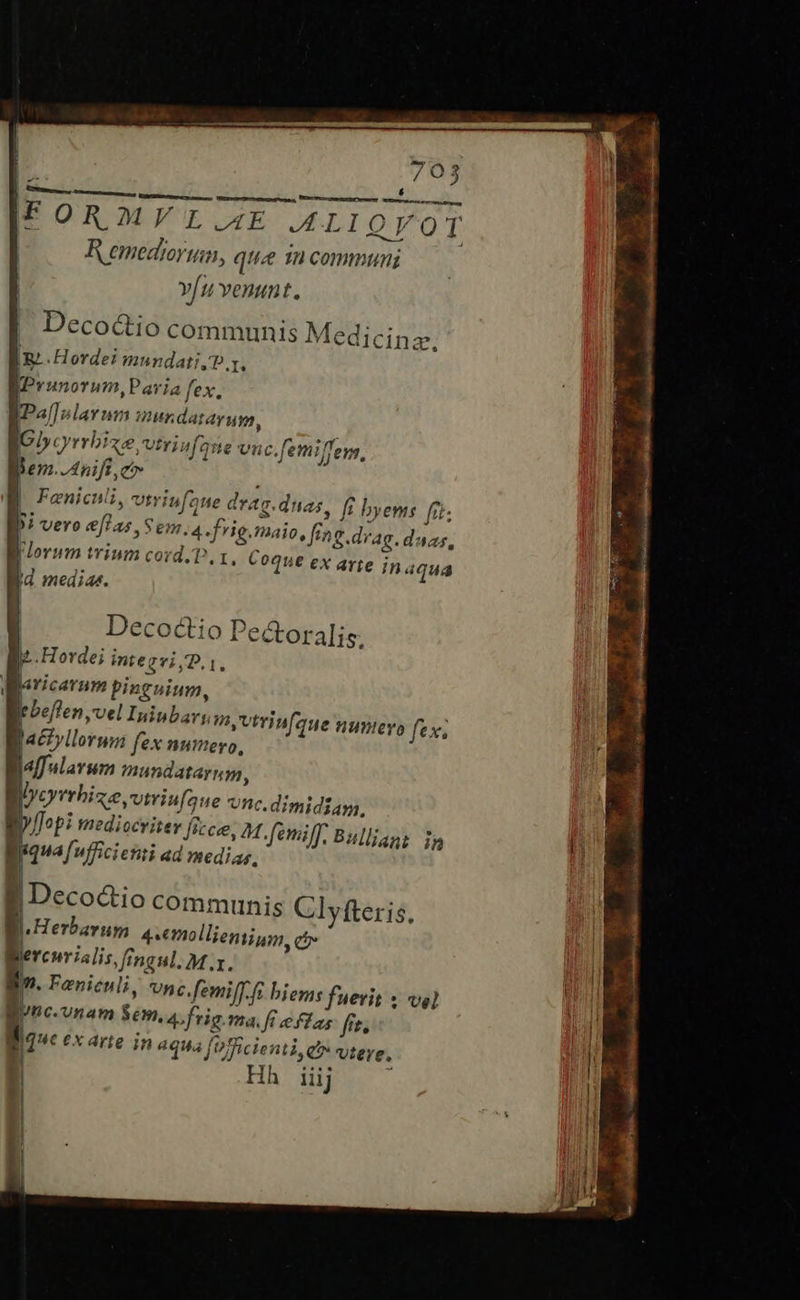 703
FORMVLÆ ALIQVOT
Remediorum, quæ in communi
vſu venunt.
Decoctio communis Medicinæ.
℞. Hordei mundati, P. 1.
Prunorum, Paria ſex.
Paſſularum mundatarum,
Glycyrrhizæ, vtriuſque vnc. ſemiſſem,
em. Aniſi, &
Fœniculi, vtriuſque drag. duas, ſi hyems ſit:
i vero æſtas, Sem. 4. frig. maio. ſing. drag. duas,
lorum trium cord. P. 1. Coque ex arte in aqua
d medias.
Decoctio Pectoralis.
Hordei integri, P. 1.
aricarum pinguium,
ebeſten, vel Iuiubarum, vtriuſque numero ſex,
actyllorum ſex numero,
aſſularum mundatarum,
lycyrrhizæ, vtriuſque vnc. dimidiam,
yſſopi mediocriter ſiccæ, M. ſemiſſ. Bulliant in
aqua ſufficienti ad medias.
Decoctio communis Clyſteris.
. Herbarum 4. emollientium, &
ercurialis, ſingul. M. 1.
m. Fœniculi, vnc. ſemiſſ. ſi hiems fuerit : vel
vnc. vnam Sem. 4. frig. ma. ſi æſtas ſit,
que ex arte in aqua ſufficienti, & vtere.
Hh iiij